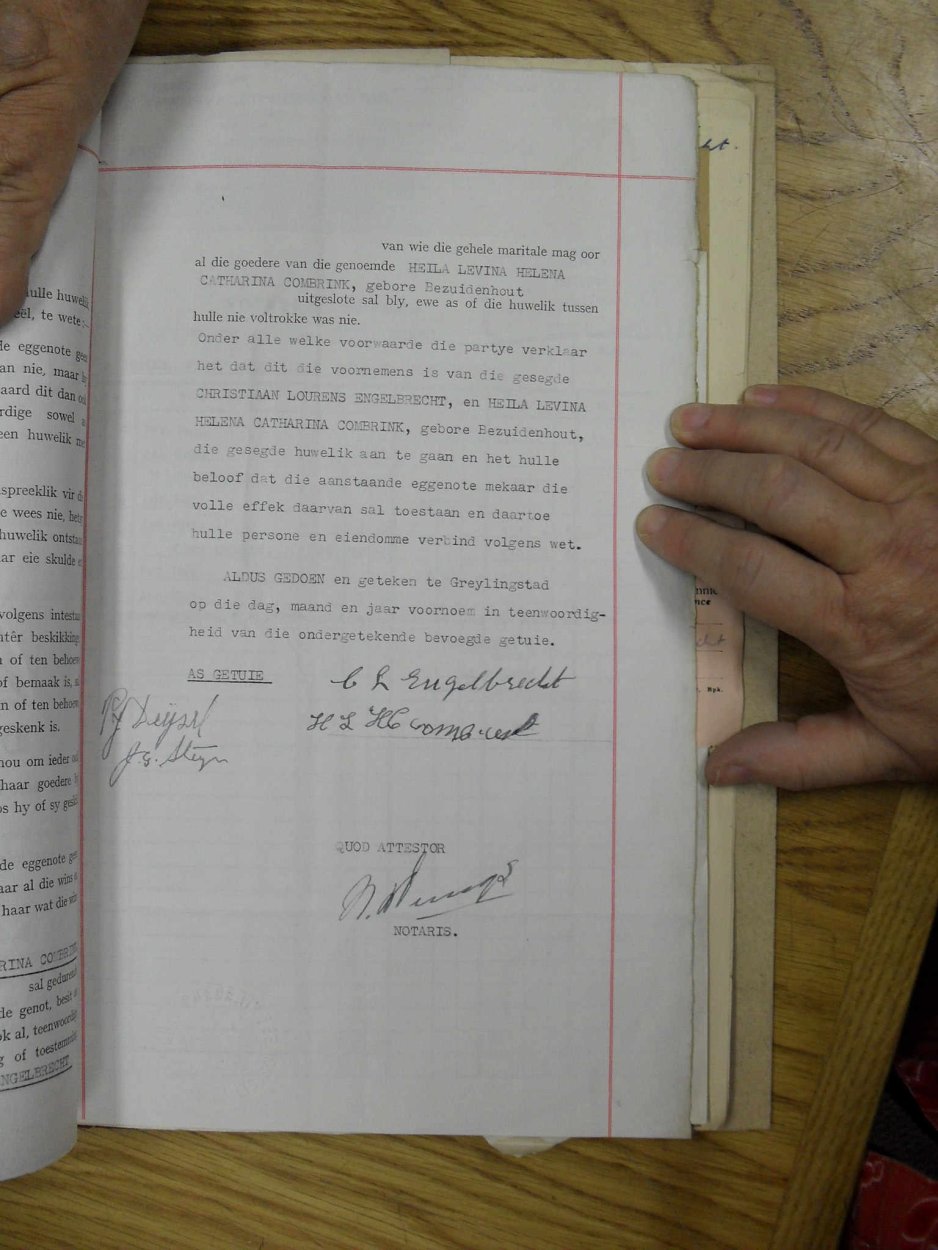 ulle huwelik
eël, te wete :—
de eggenote geen
an nie, maar
aard dit dan ook
rdige sowel
een huwelik
spreeklik vir
e wees nie,
huwelik ontstaan
ar eie skulde
volgens intestaat
beskikking
n of ten behoewe
of bemaak is,
n of ten behoewe
geskenk is.
hou om ieder
haar goedere
os hy of sy
de eggenote
aar al die wins
haar wat die
RINA COMBRINK
sal gedurende
de genot, besit
ok al, teenwoordig
g of toestemming
NGELBRECHT
van wie die gehele maritale mag oor
al die goedere van die genoemde HEILA LEVINA HELENA
CATHARINA COMBRINK, gebore Bezuidenhout
uitgeslote sal bly, ewe as of die huwelik tussen
hulle nie voltrokke was nie.
Onder alle welke voorwaarde die partye verklaar
het dat dit die voornemens is van die gesegde
CHRISTIAAN LOURENS ENGELBRECHT, en HEILA LEVINA
HELENA CATHARINA COMBRINK, gebore Bezuidenhout,
die gesegde huwelik aan te gaan en het hulle
beloof dat die aanstaande eggenote mekaar die
volle effek daarvan sal toestaan en daartoe
hulle persone en eiendomme verbind volgens wet.
ALDUS GEDOEN en geteken te Greylingstad
op die dag, maand en jaar voornoem in teenwoordig-
heid van die ondergetekende bevoegde getuie.
AS GETUIE
C L Engelbrecht
H L HC Combrink
J.G. Steyn
QUOD ATTESTOR
NOTARIS.
ht.
nce
cht
Bpk.